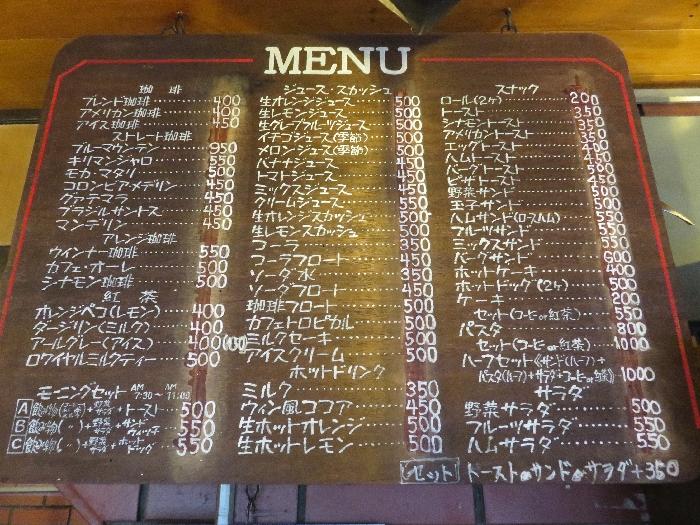 MENU
珈 琲
ブレンド珈琲 400
アメリカン珈琲 400
アイス珈琲 450
ストレート珈琲
ブルーマウンテン 950
キリマンジャロ 550
モカ・マタリ 500
コロンビアメデリン 450
グァテマラ 450
ブラジルサントス 450
マンデリン 450
アレンジ珈琲
ウインナー珈琲 550
カフェ・オーレ 500
シナモン珈琲 500
紅 茶
オレンジペコ(レモン) 400
ダージリン(ミルク) 400
アールグレー(アイス) 400(450)
ロワイヤルミルクティー 500
モーニングセット AM 7:30 〜 AM 11:00
A 飲み物 + 野菜サラダ + トースト 500
B 飲み物(〃) + 野菜サラダ + サンドウィッチ 550
C 飲み物(〃) + 野菜サラダ + ホットドッグ 550
ジュース・スカッシュ
生オレンジジュース 500
生レモンジュース 500
生グレープフルーツジュース 500
イチゴジュース(季節) 500
メロンジュース(季節) 500
バナナジュース 450
トマトジュース 450
ミックスジュース 450
クリームジュース 550
生オレンジスカッシュ 500
生レモンスカッシュ 500
コーラ 350
コーラフロート 450
ソーダ水 350
ソーダフロート 450
珈琲フロート 500
カフェトロピカル 500
ミルクセーキ 500
アイスクリーム 500
ホットドリンク
ミルク 350
ウィン風ココア 450
生ホットオレンジ 500
生ホットレモン 500
スナック
ロール(2ヶ) 200
トースト 350
シナモントースト 350
アメリカントースト 350
エッグトースト 400
ハムトースト 450
バーグトースト 500
ピザトースト 450
野菜サンド 500
玉子サンド 500
ハムサンド(ロースハム) 550
フルーツサンド 550
ミックスサンド 550
バーグサンド 600
ホットケーキ 400
ホットドッグ(2ヶ) 500
ケーキ 200
セット(コーヒーor紅茶) 550
パスタ 800
セット(コーヒーor紅茶) 1000
ハーフセット(サンド(ハーフ)+
パスタ(ハーフ)+サラダ+コーヒーor紅茶) 1000
サラダ
野菜サラダ 500
フルーツサラダ 550
ハムサラダ 550
セット トーストorサンドorサラダ+350